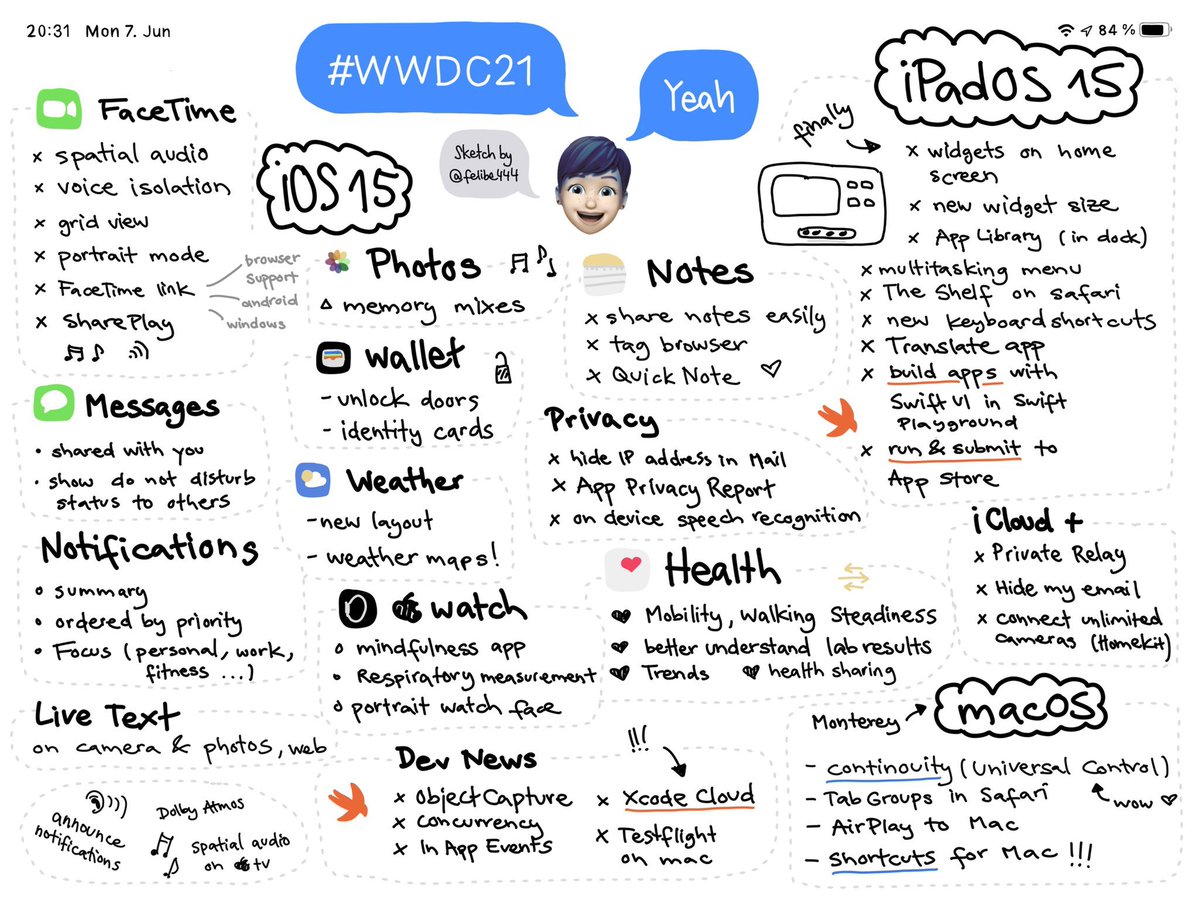 20:31 Mon 7. Jun
84 %
#WWDC21
Yeah
Sketch by
@felibe444
iOS 15
FaceTime
x spatial audio
x voice isolation
x grid view
x portrait mode
x FaceTime link
browser
support
android
windows
x SharePlay
Messages
• shared with you
• show do not disturb
status to others
Notifications
o summary
o ordered by priority
o Focus (personal, work,
fitness ...)
Live Text
on camera & photos, web
announce
notifications
Dolby Atmos
spatial audio
on tv
Photos
△ memory mixes
wallet
- unlock doors
- identity cards
Weather
- new layout
- weather maps!
watch
o mindfulness app
• Respiratory measurement
o portrait watch face
Notes
x share notes easily
x tag browser
x Quick Note ♡
Privacy
x hide IP address in Mail
x App Privacy Report
x on device speech recognition
Health
Mobility, Walking Steadiness
better understand lab results
Trends health sharing
Dev News
x Object Capture
x Concurrency
x In App Events
!!!
x Xcode Cloud
x Testflight
on mac
iPadOS 15
finally
x widgets on home
screen
x new widget size
x App Library (in dock)
x multitasking menu
x The Shelf on safari
x new keyboard shortcuts
x Translate app
x build apps with
Swift UI in Swift
Playground
x run & submit to
App Store
iCloud +
x Private Relay
x Hide my email
x connect unlimited
cameras (Homekit)
Monterey
macOS
- continouity (Universal Control)
wow ♡
- Tab Groups in Safari
- AirPlay to Mac
- Shortcuts for Mac !!!